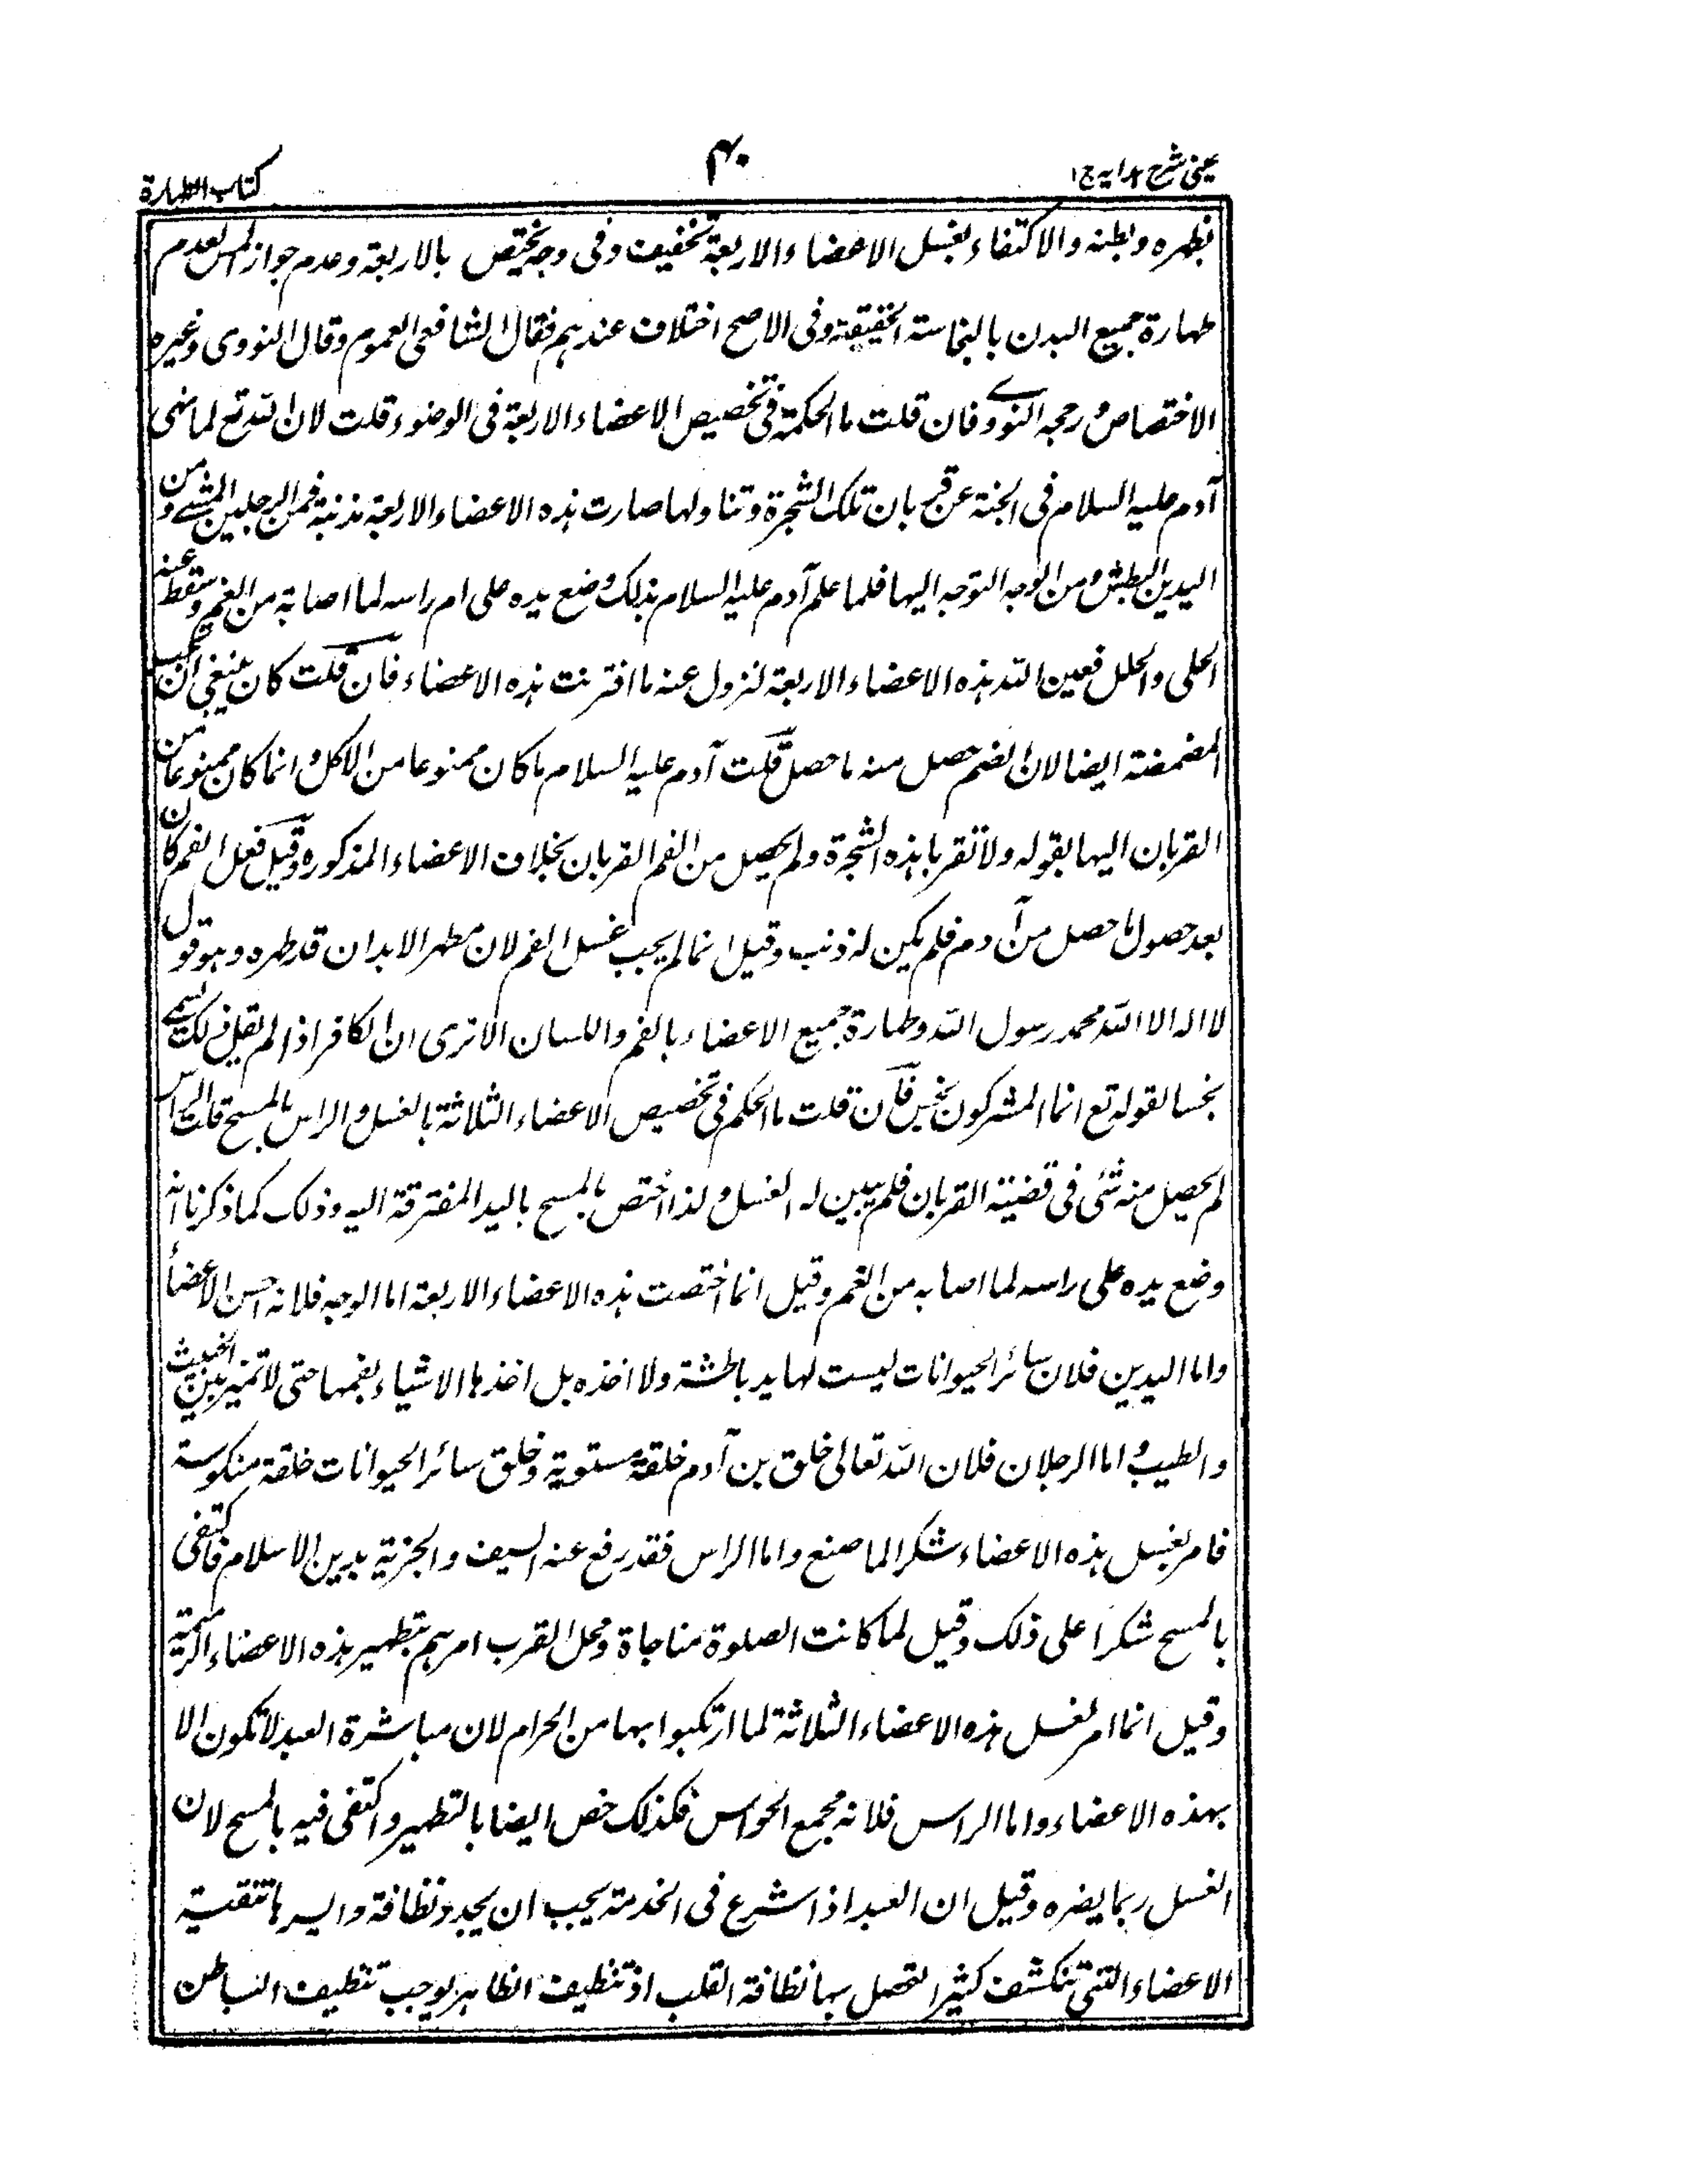 عینی شرح هدایه ج ۱
۴۰
کتاب الطهارة
بظهره وبطنه والاكتفاء بغسل الاعضاء الاربعة تخفيف وفى وجه يختص بالاربعة وعدم جواز المس لعدم
طهارة جميع البدن بالنجاسة الحقيقة وفى الاصح اختلاف عندهم فقال الشافعى العموم وقال النووى وغيره
الاختصاص ورجحه النووے فان قلت ما الحكمة فى تخصيص الاعضاء الاربعة فى الوضوء قلت لان الله تع لما نهى
آدم عليه السلام فى الجنة عن قربان تلك الشجرة وتناولها صارت هذه الاعضاء الاربعة مذنبة فمن الرجلين المشے ومن
اليدين البطش ومن الوجه التوجه اليها فلما علم آدم عليه السلام بذلك وضع يده على ام راسه لما اصابة من الغم وسقط عنه
الحلى والحلل فعين الله هذه الاعضاء الاربعة لنزول عنه ما اقترنت هذه الاعضاء فان قلت كان ينبغى ان تجب
المضمضة ايضا لان الضم حصل منه ما حصل قلت آدم عليه السلام ما كان ممنوعا من الاكل وانما كان ممنوعا من
القربان اليها بقوله ولا تقربا هذه الشجرة ولم يحصل من الفم القربان بخلاف الاعضاء المذكوره وقيل فعل الفم كان
بعد حصول ما حصل من آدم فلم يكن له ذنب وقيل انما لم يجب غسل الفم لان مطهر الابدان قد طهره وهو قول
لا اله الا الله محمد رسول الله وطهارة جميع الاعضاء بالفم واللسان الا ترى ان الكافر اذا لم يقل ذلك يسمے
نجسا لقوله تع انما المشركون نجس فان قلت ما الحكم فى تخصيص الاعضاء الثلاثة بالغسل والراس بالمسح قلت الراس
لم يحصل منه شئى فى قضية القربان فلم يبين له الغسل ولذا اختص بالمسح باليد المفترقة اليه وذلك كما ذكرنا انه
وضع يده على راسه لما اصابه من الغم وقيل انما اختصت هذه الاعضاء الاربعة اما الوجه فلانه احسن الاعضاء
واما اليدين فلان سائر الحيوانات ليست لها يد باطشة ولا اخذه بل اخذها الاشياء بفمها حتى لا تميز بين الخبيث
والطيب واما الرجلان فلان الله تعالى خلق بن آدم خلقة مستوية وخلق سائر الحيوانات خلقة منكوسة
فامر بغسل هذه الاعضاء شكرا لما صنع واما الراس فقد رفع عنه السيف والجزية بدين الاسلام فاكتفى
بالمسح شكرا على ذلك وقيل لما كانت الصلوة مناجاة ومحل القرب امرهم بتطهير هذه الاعضاء
وقيل انما امر لغسل هذه الاعضاء الثلاثة لما ارتكبوا بها من الحرام لان مباشرة العبد لا تكون الا
بهذه الاعضاء واما الراس فلانه مجمع الحواس فكذلك خص ايضا بالتطهير واكتفى فيه بالمسح لان
الغسل ربما يضره وقيل ان العبد اذا شرع فى الخدمة يجب ان يجدد نظافة وايسرها تنقية
الاعضاء التى تنكشف كثيرا لتحصل بها نظافة القلب اذ تنظيف الظاهر يوجب تنظيف الباطن